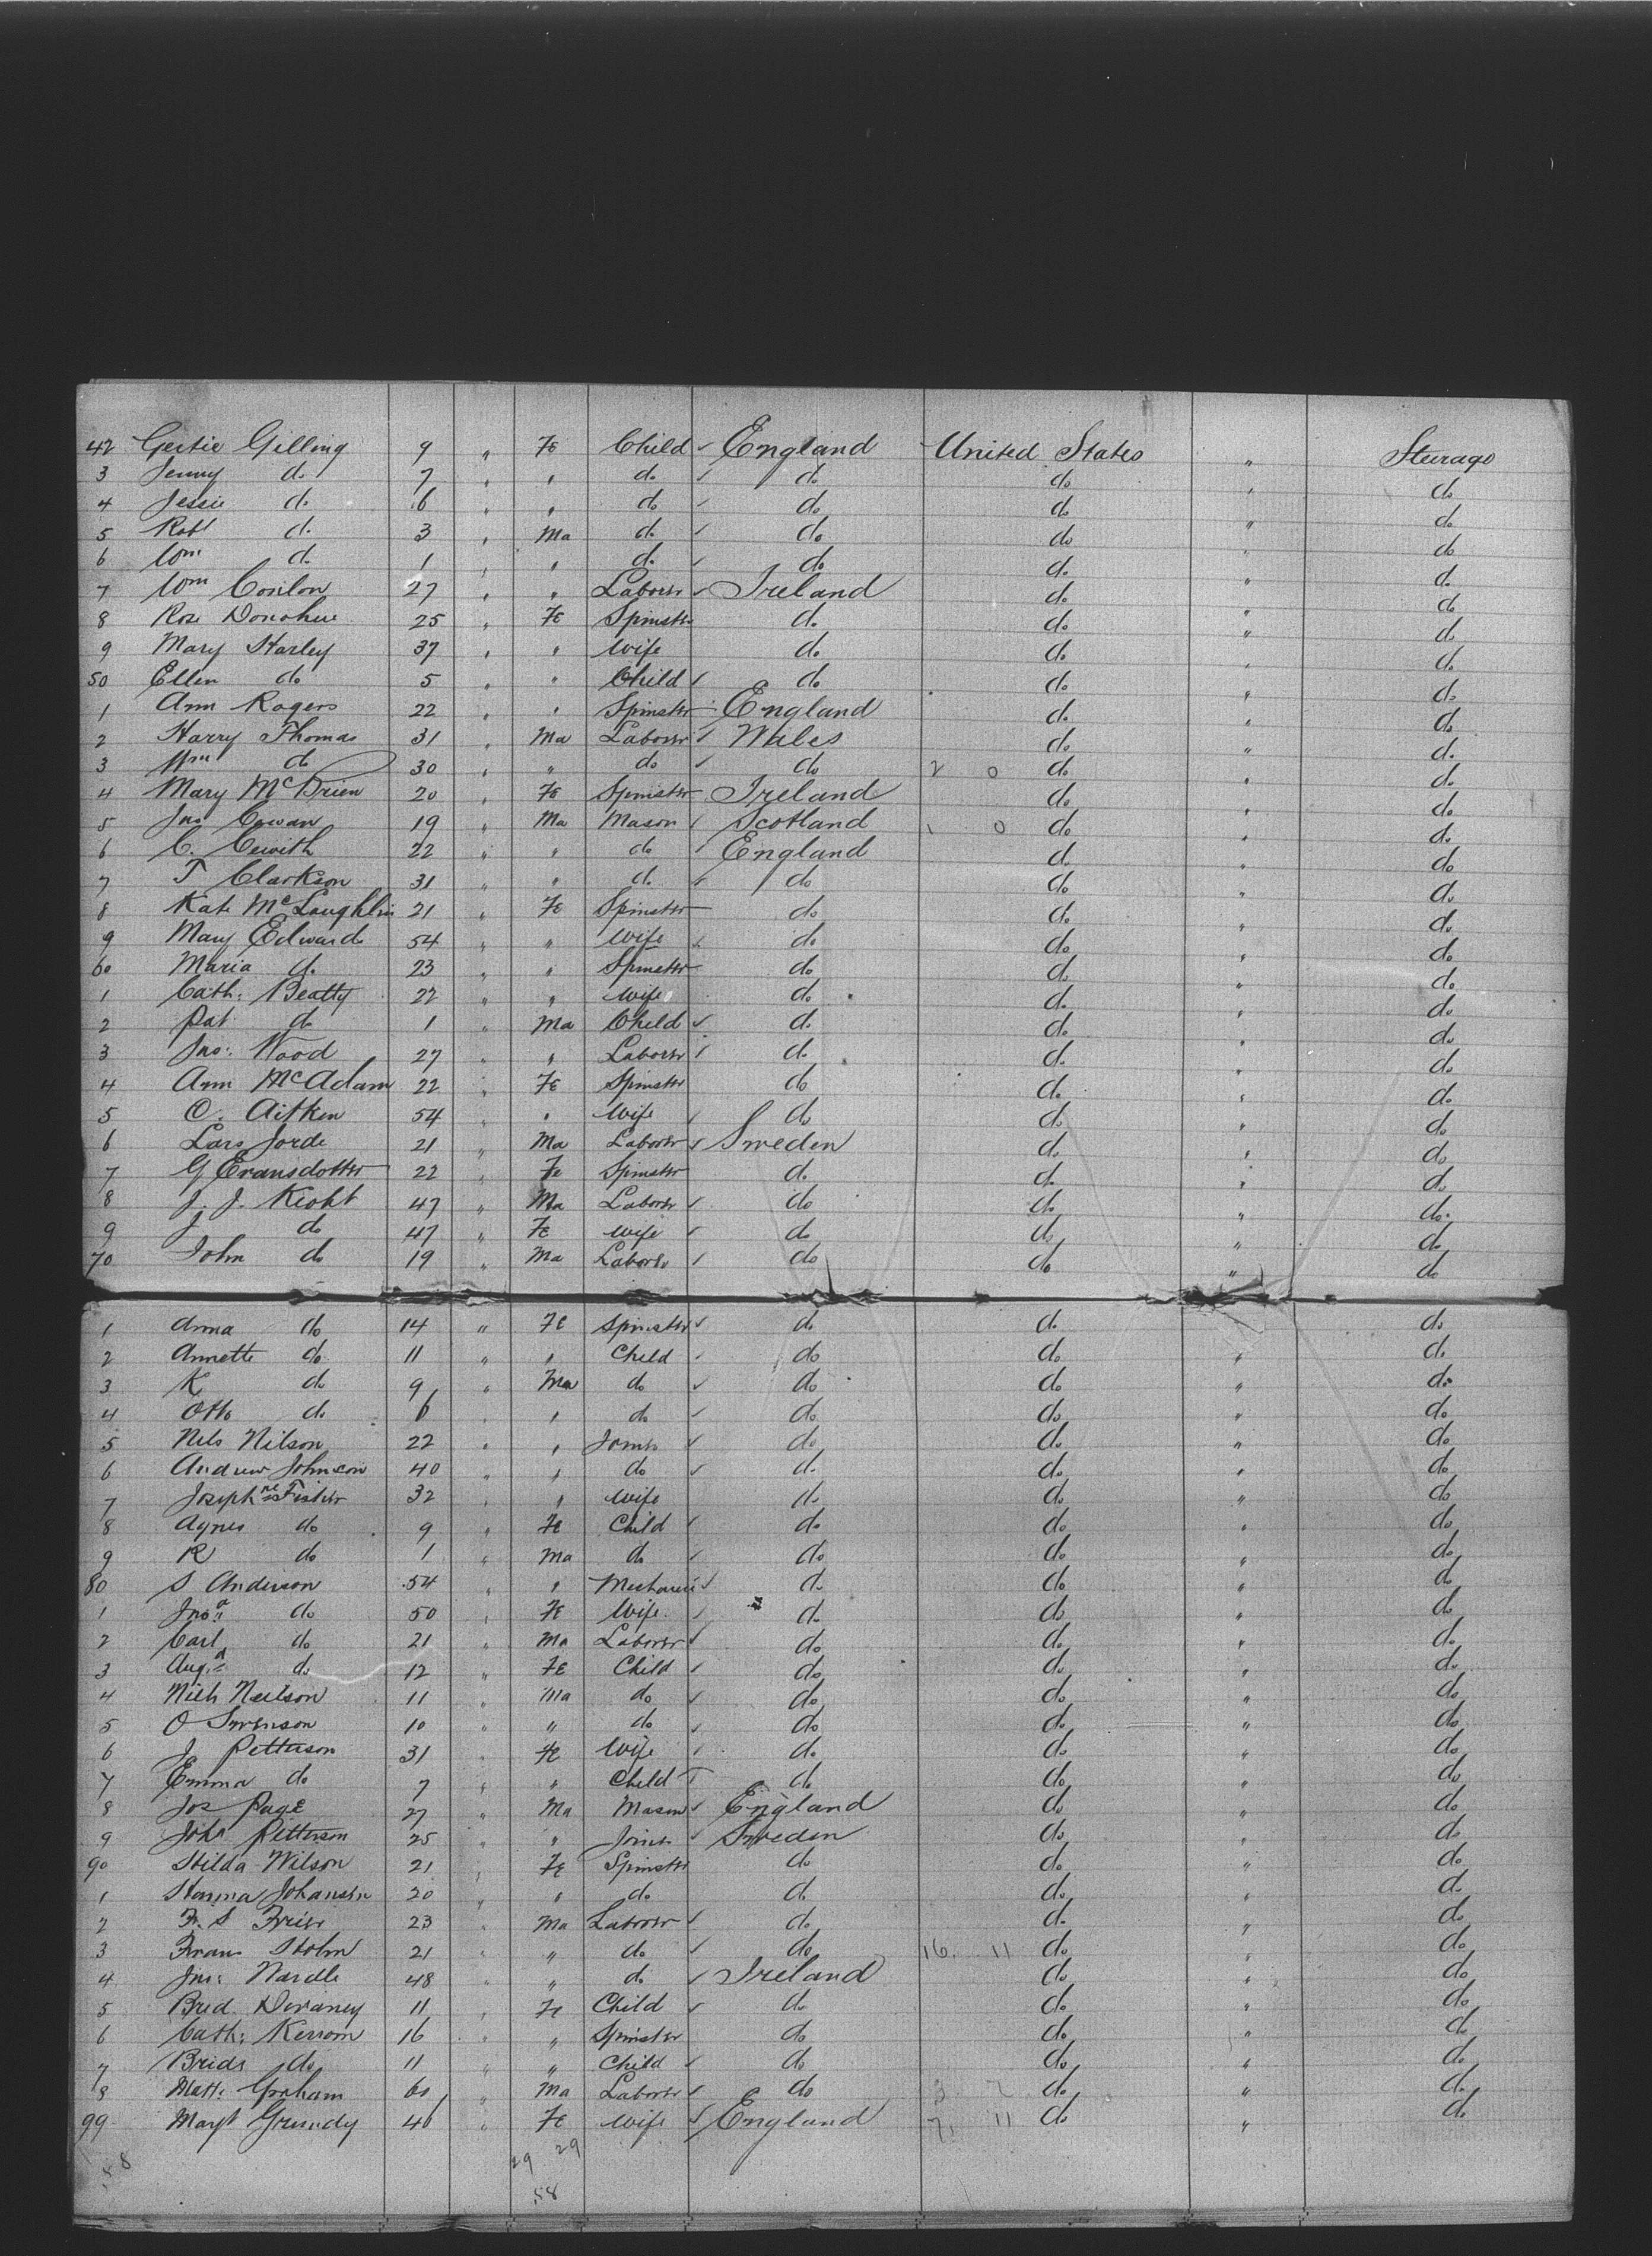 42 Gertie Gilling 9 " Fe Child ✓ England United States " Steerage
3 Jenny do 7 " " do ✓ do do " do
4 Jessie do 6 " " do ✓ do do " do
5 Robt do 3 " Ma do ✓ do do " do
6 Wm do 1 " " do ✓ do do " do
7 Wm Conlon 27 " " Laborer ✓ Ireland do " do
8 Rose Donohue 25 " Fe Spinster do do " do
9 Mary Harley 37 " " Wife do do " do
50 Ellen do 5 " " Child ✓ do do " do
1 Ann Rogers 22 " " Spinster England do " do
2 Harry Thomas 31 " Ma Laborer ✓ Wales do " do
3 Wm do 30 " " do ✓ do 2 0 do " do
4 Mary McBrien 20 " Fe Spinster Ireland do " do
5 Jno Cowan 19 " Ma Mason ✓ Scotland 1 0 do " do
6 C. Cewith 22 " " do ✓ England do " do
7 T Clarkson 31 " " do ✓ do do " do
8 Kate McLaughlin 21 " Fe Spinster do do " do
9 Mary Edwards 54 " " Wife do do " do
60 Maria do 23 " " Spinster do do " do
1 Cath: Beatty 22 " " Wife do do " do
2 Pat do 1 " Ma Child ✓ do do " do
3 Jno: Wood 27 " " Laborer ✓ do do " do
4 Ann McAdam 22 " Fe Spinster do do " do
5 C. Aitken 54 " " Wife ✓ do do " do
6 Lars Jorde 21 " Ma Laborer ✓ Sweden do " do
7 G Evansdotter 22 " Fe Spinster do do " do
8 J. J. Kioht 47 " Ma Laborer ✓ do do " do
9 J do 47 " Fe Wife ✓ do do " do
70 John do 19 " Ma Laborer ✓ do do " do
1 Anna do 14 " Fe Spinster ✓ do do do
2 Annette do 11 " " Child ✓ do do " do
3 K do 9 " Ma do ✓ do do " do
4 Otto do 6 " " do ✓ do do " do
5 Nels Nilson 22 " " Joiner ✓ do do " do
6 Andrew Johnson 40 " " do ✓ do do " do
7 Josephne Fisher 32 " " Wife do do " do
8 Agnes do 9 " Fe Child ✓ do do " do
9 R do 1 " Ma do ✓ do do " do
80 S Anderson 54 " " Mechanic ✓ do do " do
1 Jnoa do 50 " Fe Wife ✓ do do " do
2 Carl do 21 " Ma Laborer ✓ do do " do
3 Auga do 12 " Fe Child ✓ do do " do
4 Nich Neilson 11 " Ma do ✓ do do " do
5 O Swenson 10 " " do ✓ do do " do
6 J Petterson 31 " Fe Wife ✓ do do " do
7 Emma do 7 " " Child do do " do
8 Jos Page 27 " Ma Mason ✓ England do " do
9 Joha Petterson 25 " " Joiner ✓ Sweden do " do
90 Hilda Wilson 21 " Fe Spinster do do " do
1 Hanna Johansen 20 " " do do do " do
2 F. S Frier 23 " Ma Laborer ✓ do do " do
3 Frans Holm 21 " " do ✓ do 16. 11 do " do
4 Jno: Nardle 48 " " do ✓ Ireland do " do
5 Brid. Devaney 11 " Fe Child ✓ do do " do
6 Cath: Kerrom 16 " " Spinster do do " do
7 Bridt do 11 " " Child ✓ do do " do
8 Matt: Graham 60 " Ma Laborer ✓ do 3 2 do " do
99 Mayt Grundy 46 " Fe Wife ✓ England 7. 11 do " do
58 29 29
58